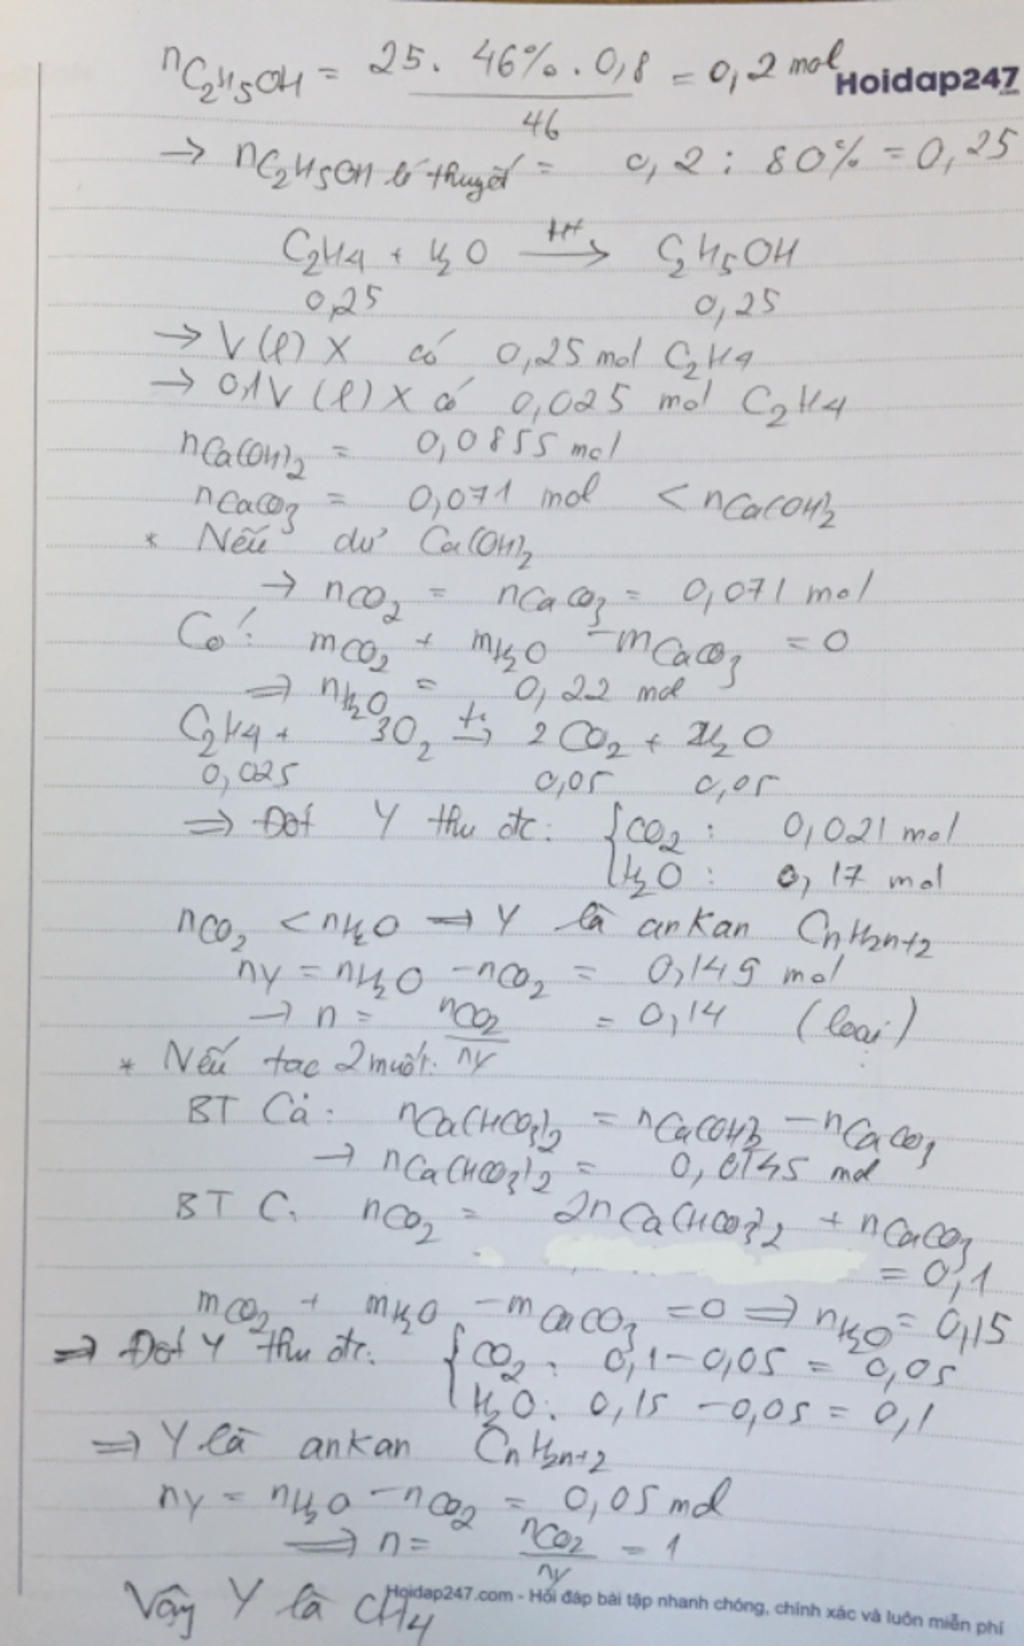 nC₂H₅OH = 25. 46%. 0,8 / 46 = 0,2 mol
Hoidap247
→ nC₂H₅OH lí thuyết = 0,2 : 80% = 0,25
C₂H₄ + H₂O →(H⁺) C₂H₅OH
0,25 0,25
→ V(l) X có 0,25 mol C₂H₄
→ 0,1V (l) X có 0,025 mol C₂H₄
nCa(OH)₂ = 0,0855 mol
nCaCO₃ = 0,071 mol < nCa(OH)₂
* Nếu dư Ca(OH)₂
→ nCO₂ = nCaCO₃ = 0,071 mol
Có: mCO₂ + mH₂O - mCaCO₃ = 0
⇒ nH₂O = 0,22 mol
C₂H₄ + 3O₂ →(t°) 2CO₂ + 2H₂O
0,025 0,05 0,05
⇒ Đốt Y thu đc: { CO₂ : 0,021 mol
H₂O : 0,17 mol
nCO₂ < nH₂O ⇒ Y là ankan CnH2n+2
nY = nH₂O - nCO₂ = 0,149 mol
→ n = nCO₂ / nY = 0,14 (loại)
* Nếu tạo 2 muối:
BT Ca: nCa(HCO₃)₂ = nCa(OH)₂ - nCaCO₃
→ nCa(HCO₃)₂ = 0,0145 mol
BT C: nCO₂ = 2nCa(HCO₃)₂ + nCaCO₃
= 0,1
mCO₂ + mH₂O - mCaCO₃ = 0 ⇒ nH₂O = 0,15
⇒ Đốt Y thu đc: { CO₂ : 0,1 - 0,05 = 0,05
H₂O : 0,15 - 0,05 = 0,1
⇒ Y là ankan CnH2n+2
nY = nH₂O - nCO₂ = 0,05 mol
⇒ n = nCO₂ / nY = 1
Vậy Y là CH₄
Hoidap247.com - Hỏi đáp bài tập nhanh chóng, chính xác và luôn miễn phí